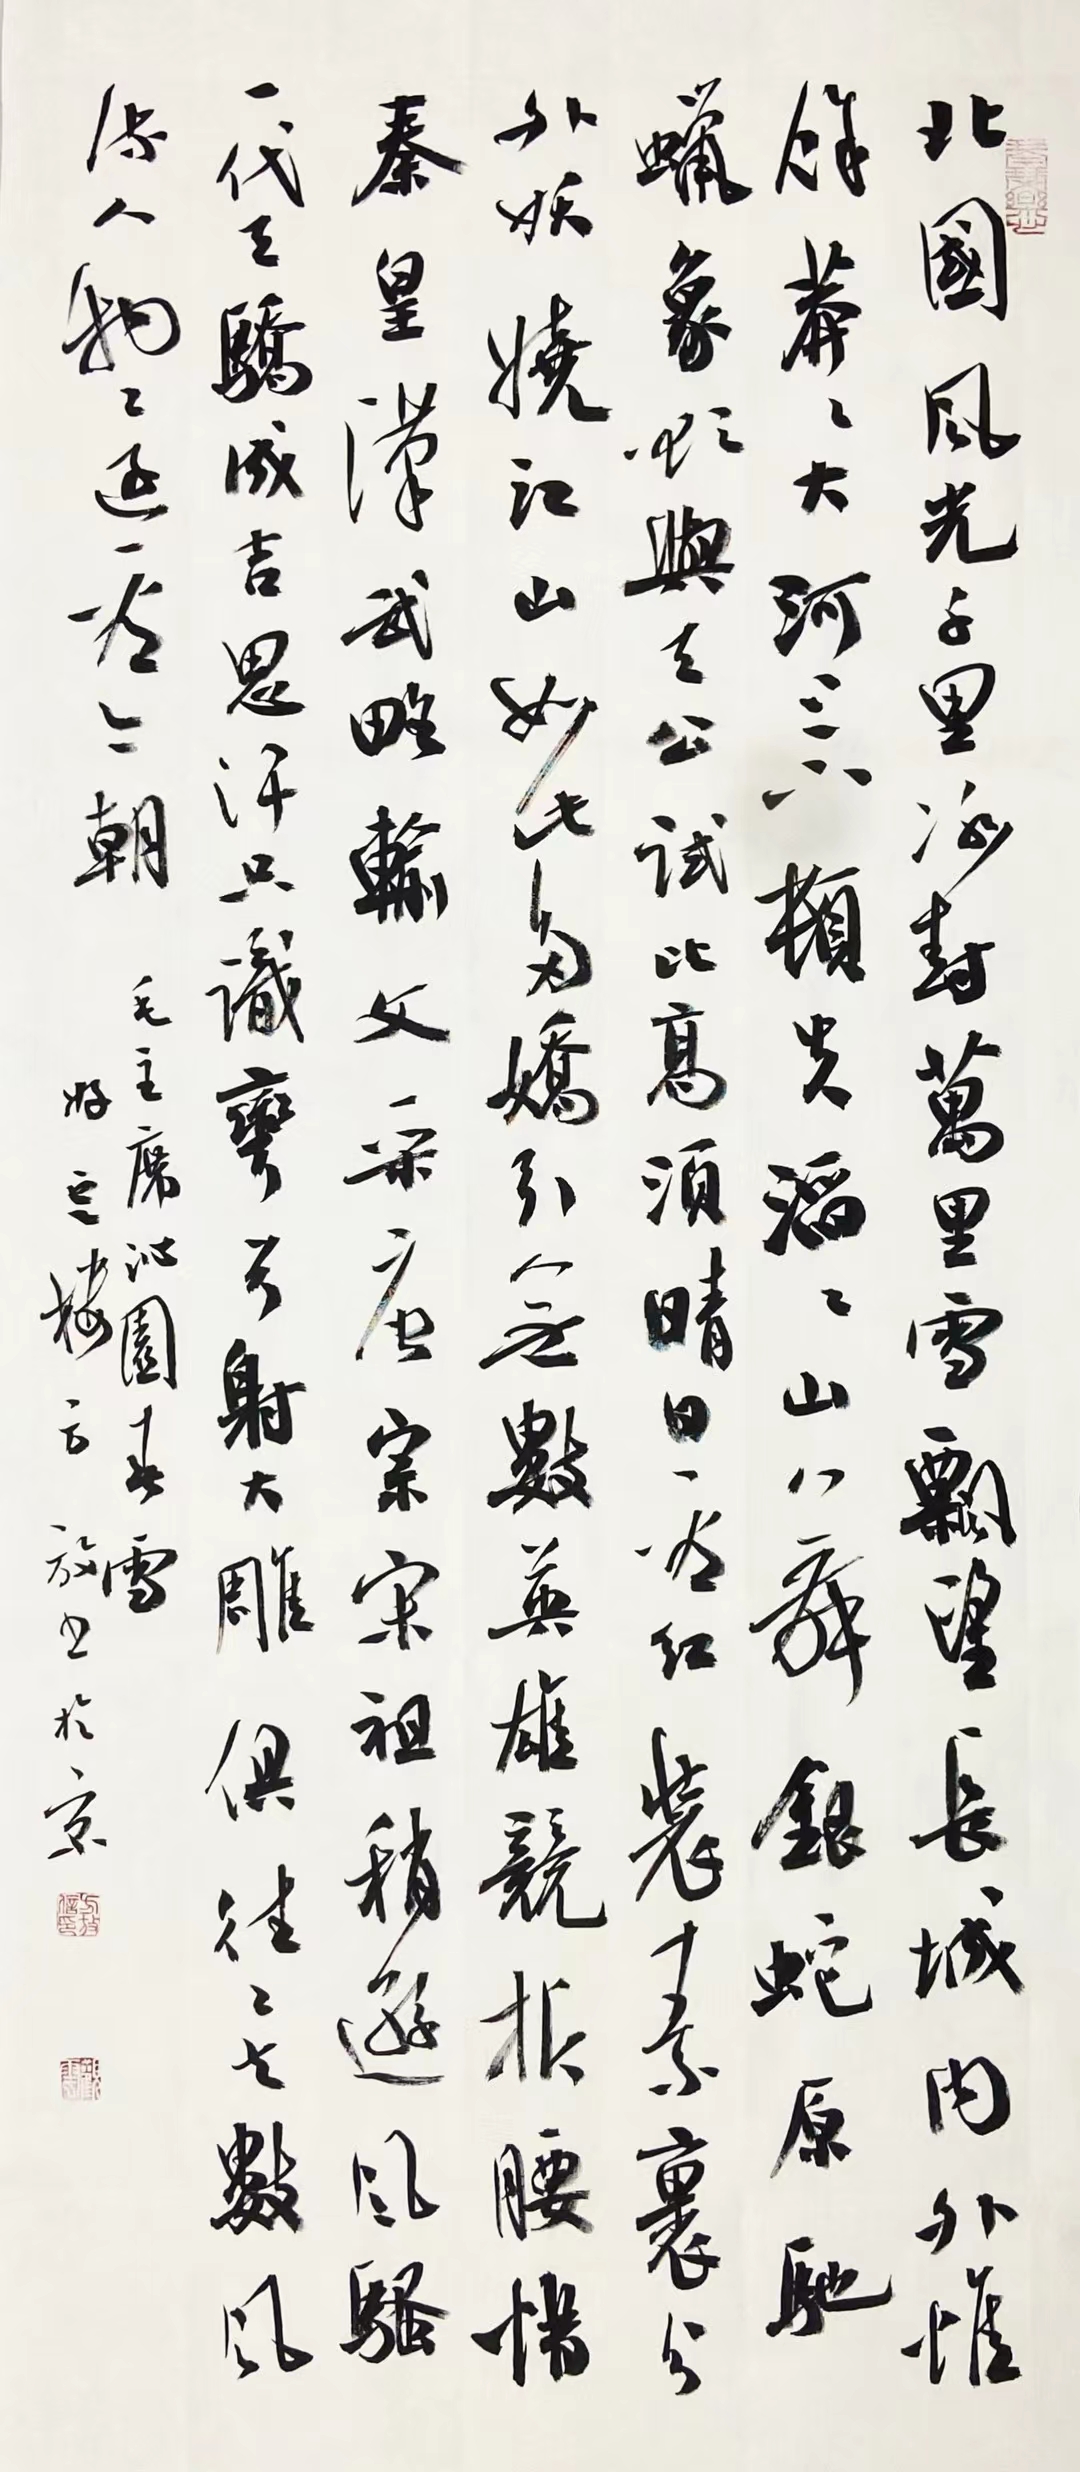 北國風光千里冰封萬里雪飄望長城内外惟
餘莽〻大河上下頓失滔〻山舞銀蛇原馳
蠟象欲與天公試比高須晴日一看紅裝素裹分
外妖嬈江山如此多嬌引無數英雄競折腰惜
秦皇漢武略輸文采唐宗宋祖稍遜風騷
一代天驕成吉思汗只識彎弓射大雕俱往〻矣數風
流人物〻還看今朝
毛主席沁園春雪
好樓方放书於京